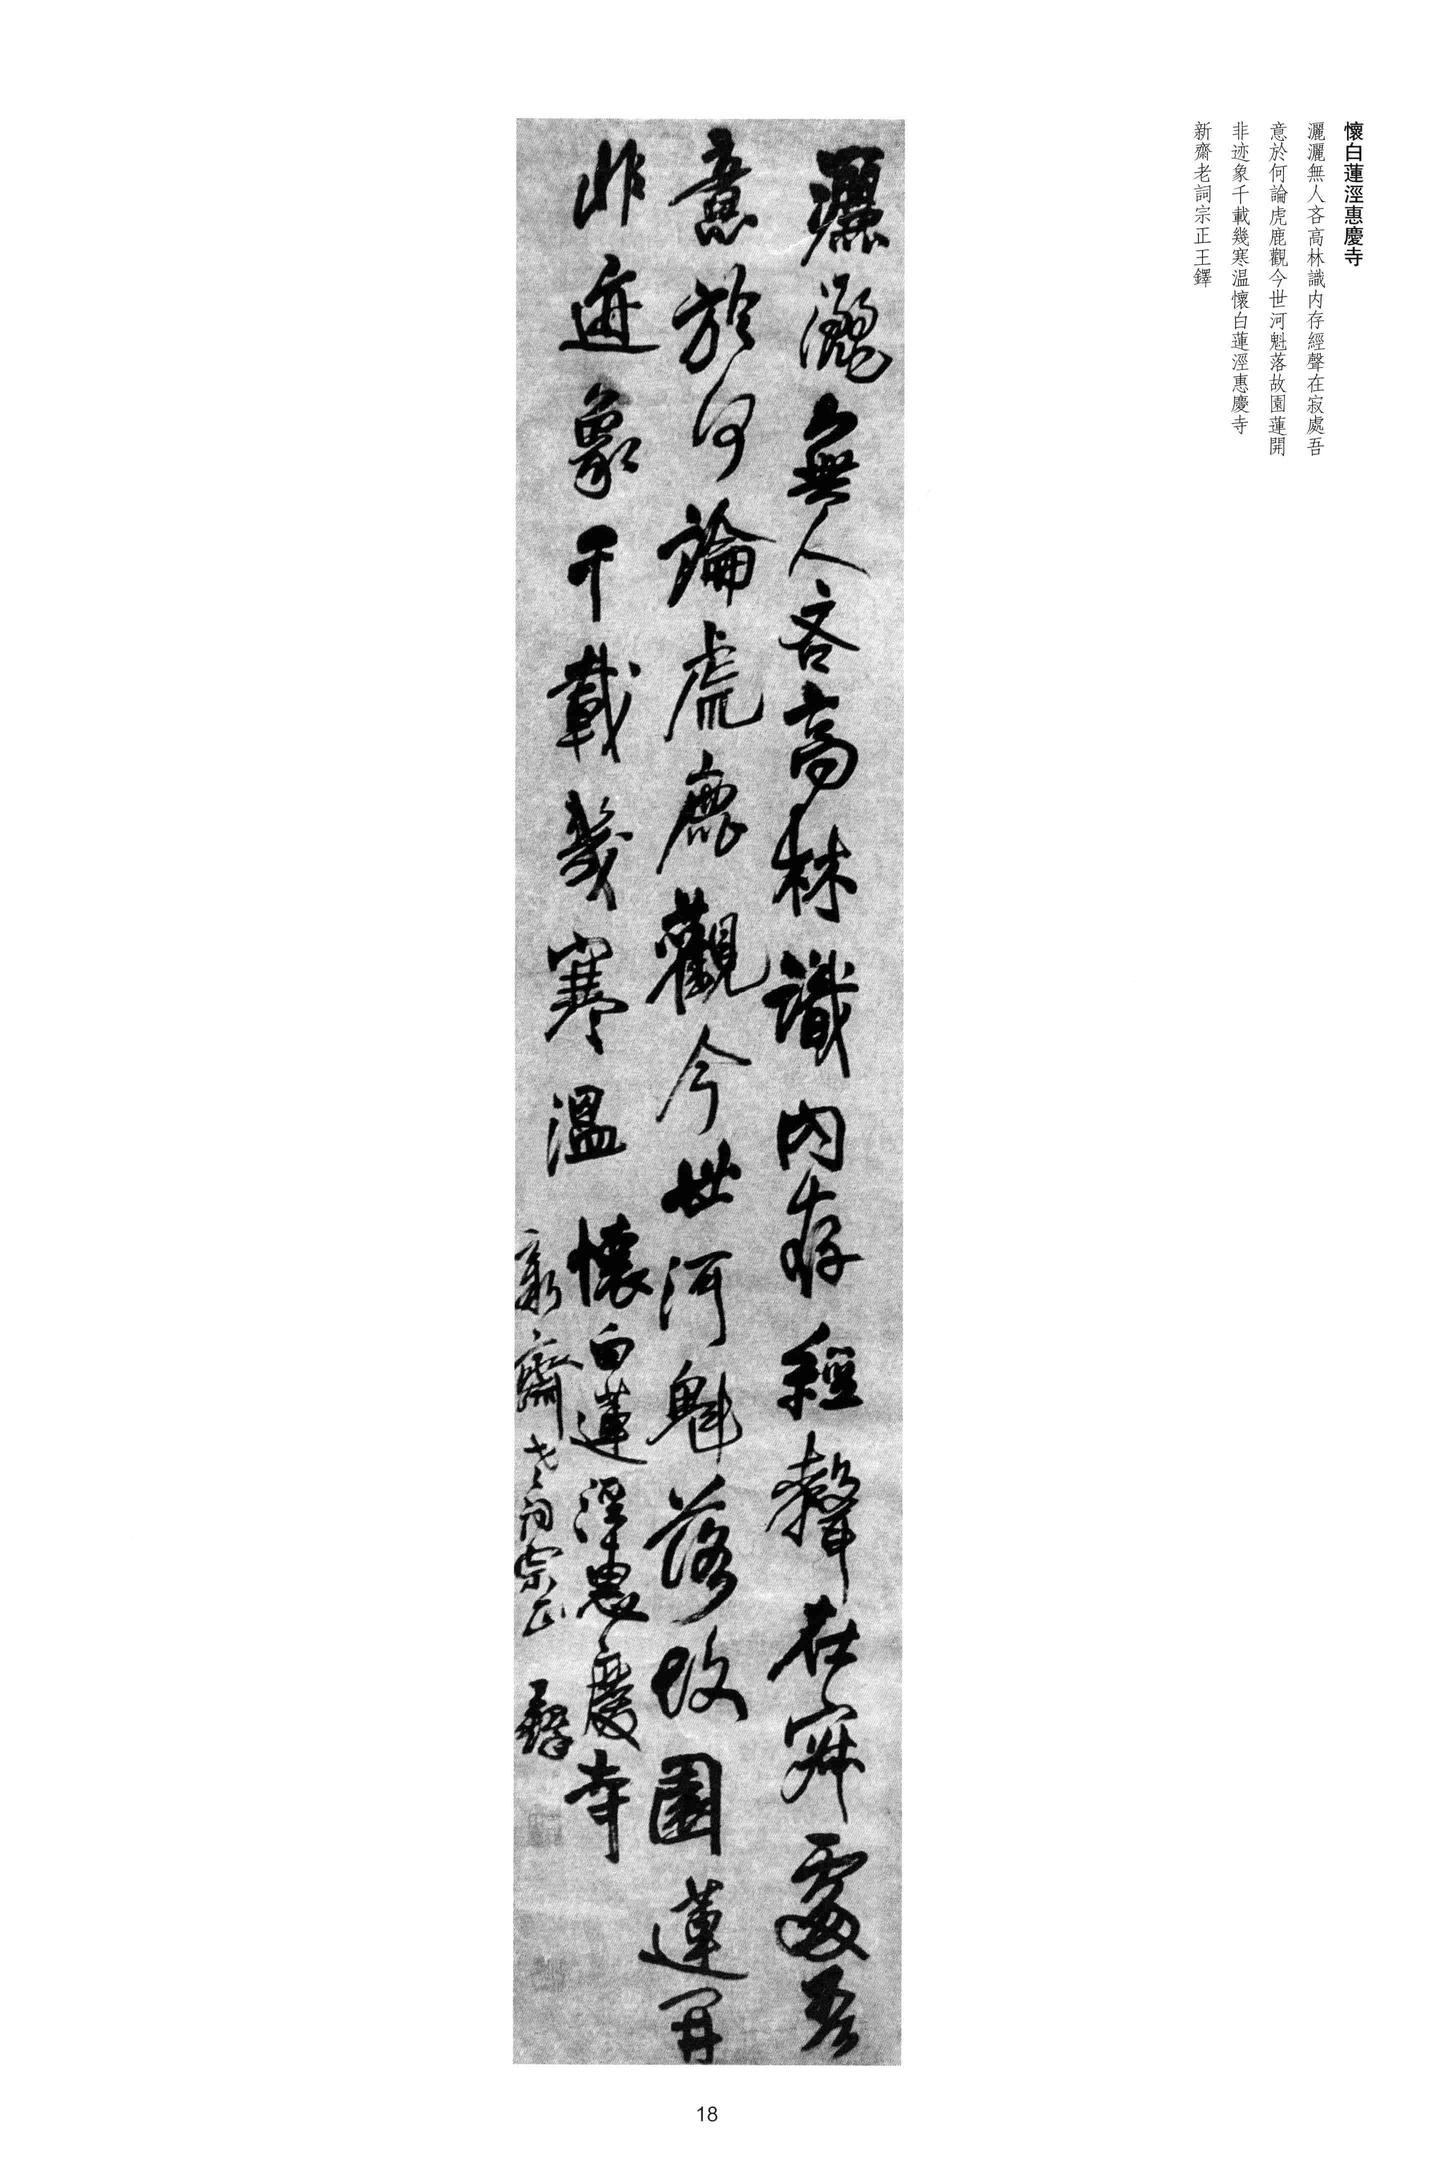 懷白蓮淫惠慶寺
灑灑無人吝高林識内存經聲在寂處吾
意於何論虎鹿觀今世河魁落故園蓮開
非迹象千載幾寒温懷白蓮淫惠慶寺
新齋老詞宗正王鐸
灑灑無人吝高林識内存經聲在寂處吾
意於何論虎鹿觀今世河魁落故園蓮開
非迹象千載幾寒溫懷白蓮淫惠慶寺
新齋老詞宗正王鐸
18